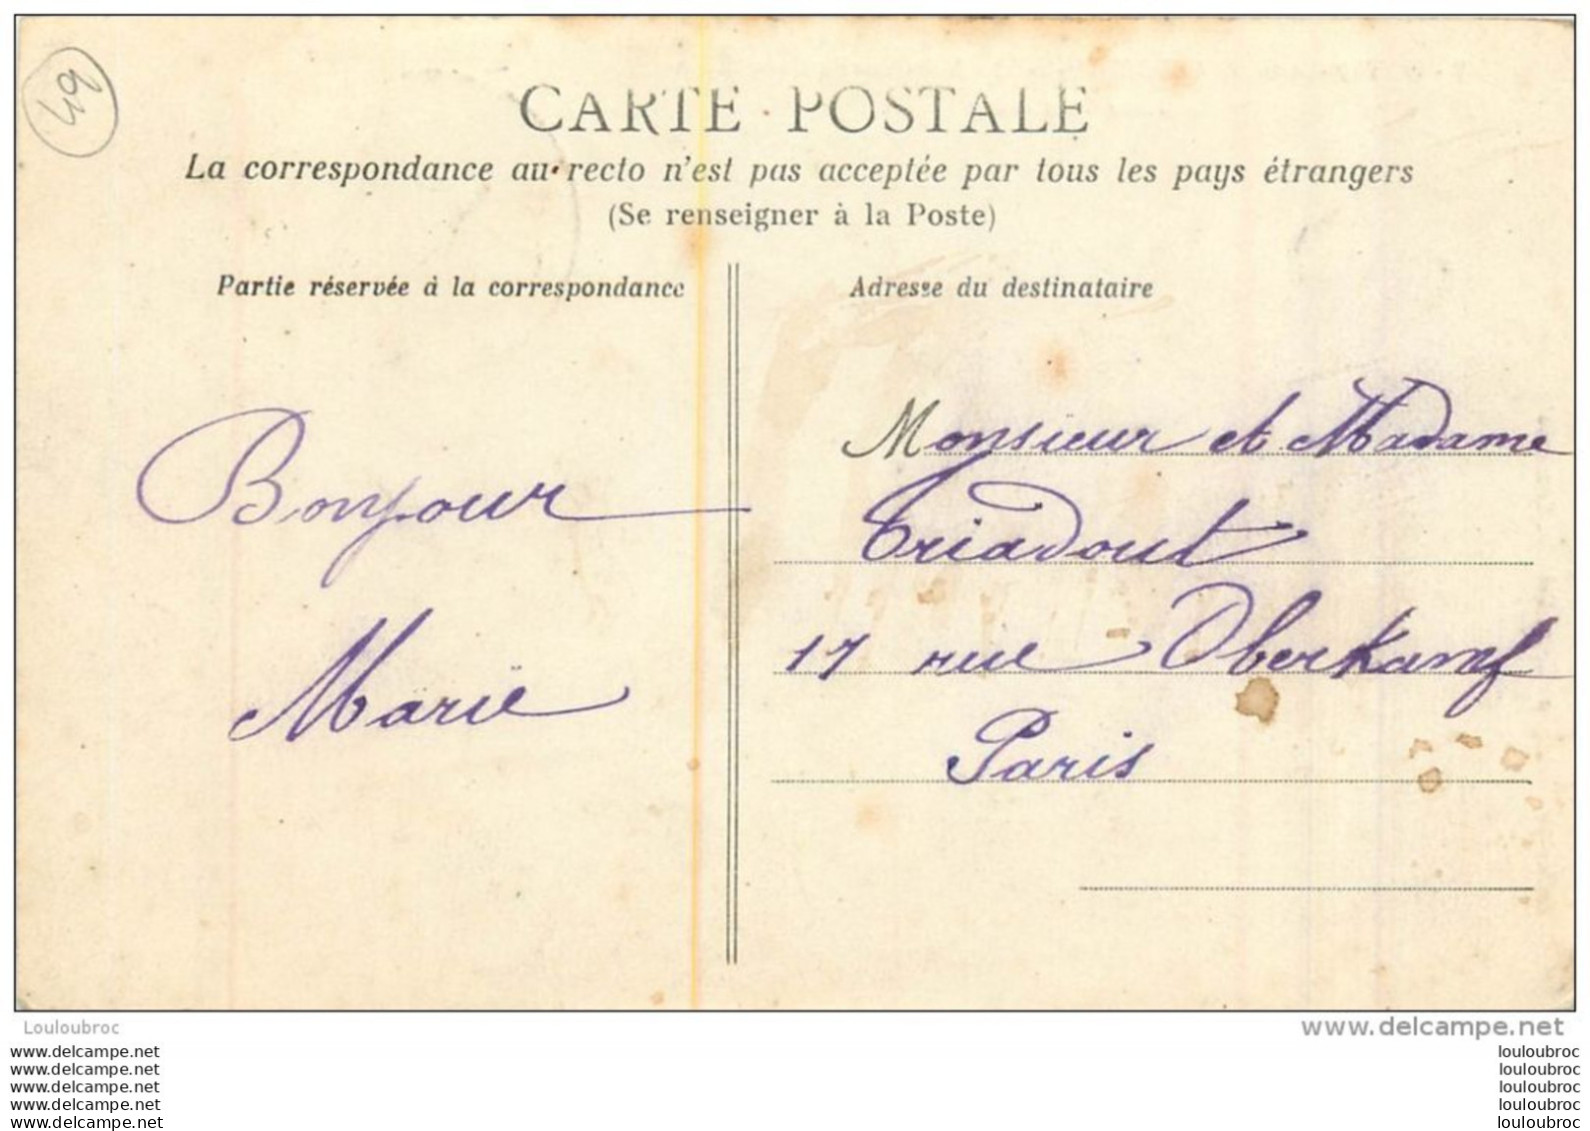 64
CARTE POSTALE
La correspondance au recto n'est pas acceptée par tous les pays étrangers
(Se renseigner à la Poste)
Partie réservée à la correspondance
Adresse du destinataire
Bonjour
Marie
Monsieur et Madame
Triadout
17 rue Oberkamf
Paris
Louloubroc
www.delcampe.net
www.delcampe.net
www.delcampe.net
www.delcampe.net
www.delcampe.net
www.delcampe.net
louloubroc
louloubroc
louloubroc
louloubroc
louloubroc